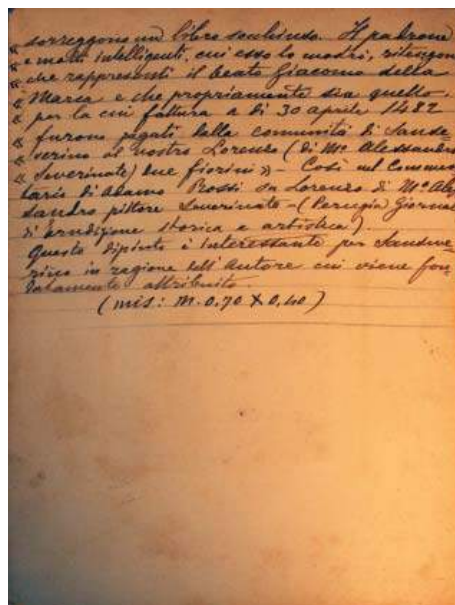 « sorreggono un libro socchiuso. Il padrone
« e molti intelligenti, cui esso lo mostrò, ritengon
« che rappresenti il beato Giacomo della
« Marca e che propriamente sia quello,
« per la cui fattura a dì 30 aprile 1482
« furono pagati dalla comunità di Sanse
« verino al nostro Lorenzo (di Mº Alessandro
« Severinate) due fiorini » - Così nel Commen
tario di Adamo Rossi su Lorenzo di Mº Ales
sandro pittore Severinate - (Perugia Giornal
di erudizione storica e artistica).
Questo dipinto è interessante per Sanseve-
rino in ragione dell'Autore cui viene fon-
datamente attribuito.
(mis: m. 0,70 X 0,40)